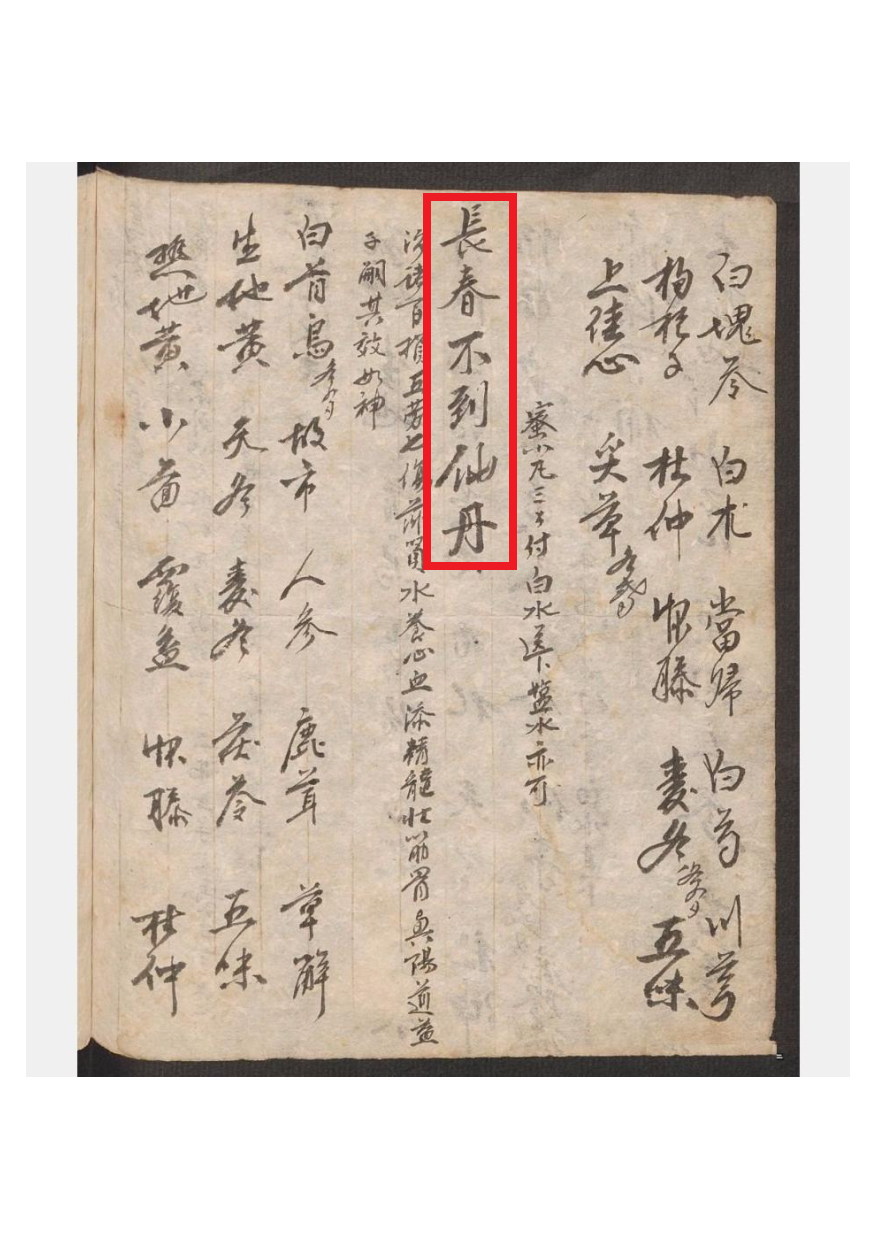 白塊苓 白朮 當歸 白芍 川芎
枸杞子 杜仲 牛膝 麦冬 各 五味
上桂心 炙草
蜜小丸三🞄付白水送下塩水亦可
長春不到仙丹
治諸百損五劳七傷滋腎水養心血添精髓壮筋骨興陽道益
子嗣其效如神
白首烏 故市 人参 鹿茸 草解
生地黄 天冬 麦冬 茯苓 五味
熟地黄 小茴 覆盆 牛膝 杜仲